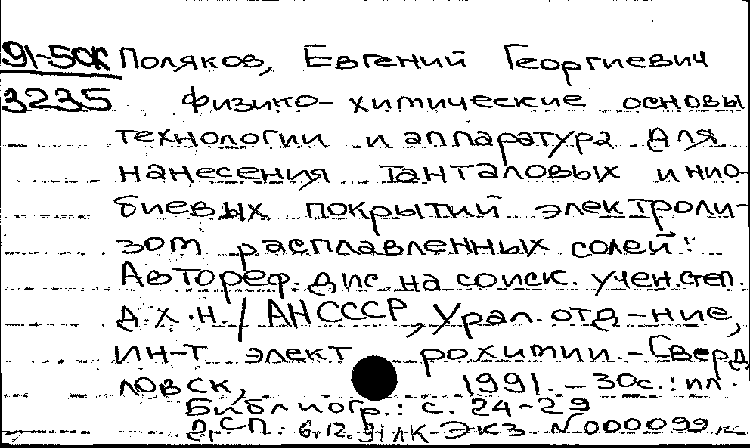 91-50к Поляков, Евгений Георгиевич
3235 Физико-химические основы
технологии и аппаратура для
нанесения танталовых и нио-
биевых покрытий электроли-
зом расплавленных солей:
Автореф. дис. на соиск. учен. степ.
д.х.н. / АН СССР, Урал. отд-ние,
Ин-т элект рохимии. - Сверд
ловск, 1991. - 30с.: ил.
Библиогр.: с. 24-29
6.12.91 ЛК-ЭКЗ N000099